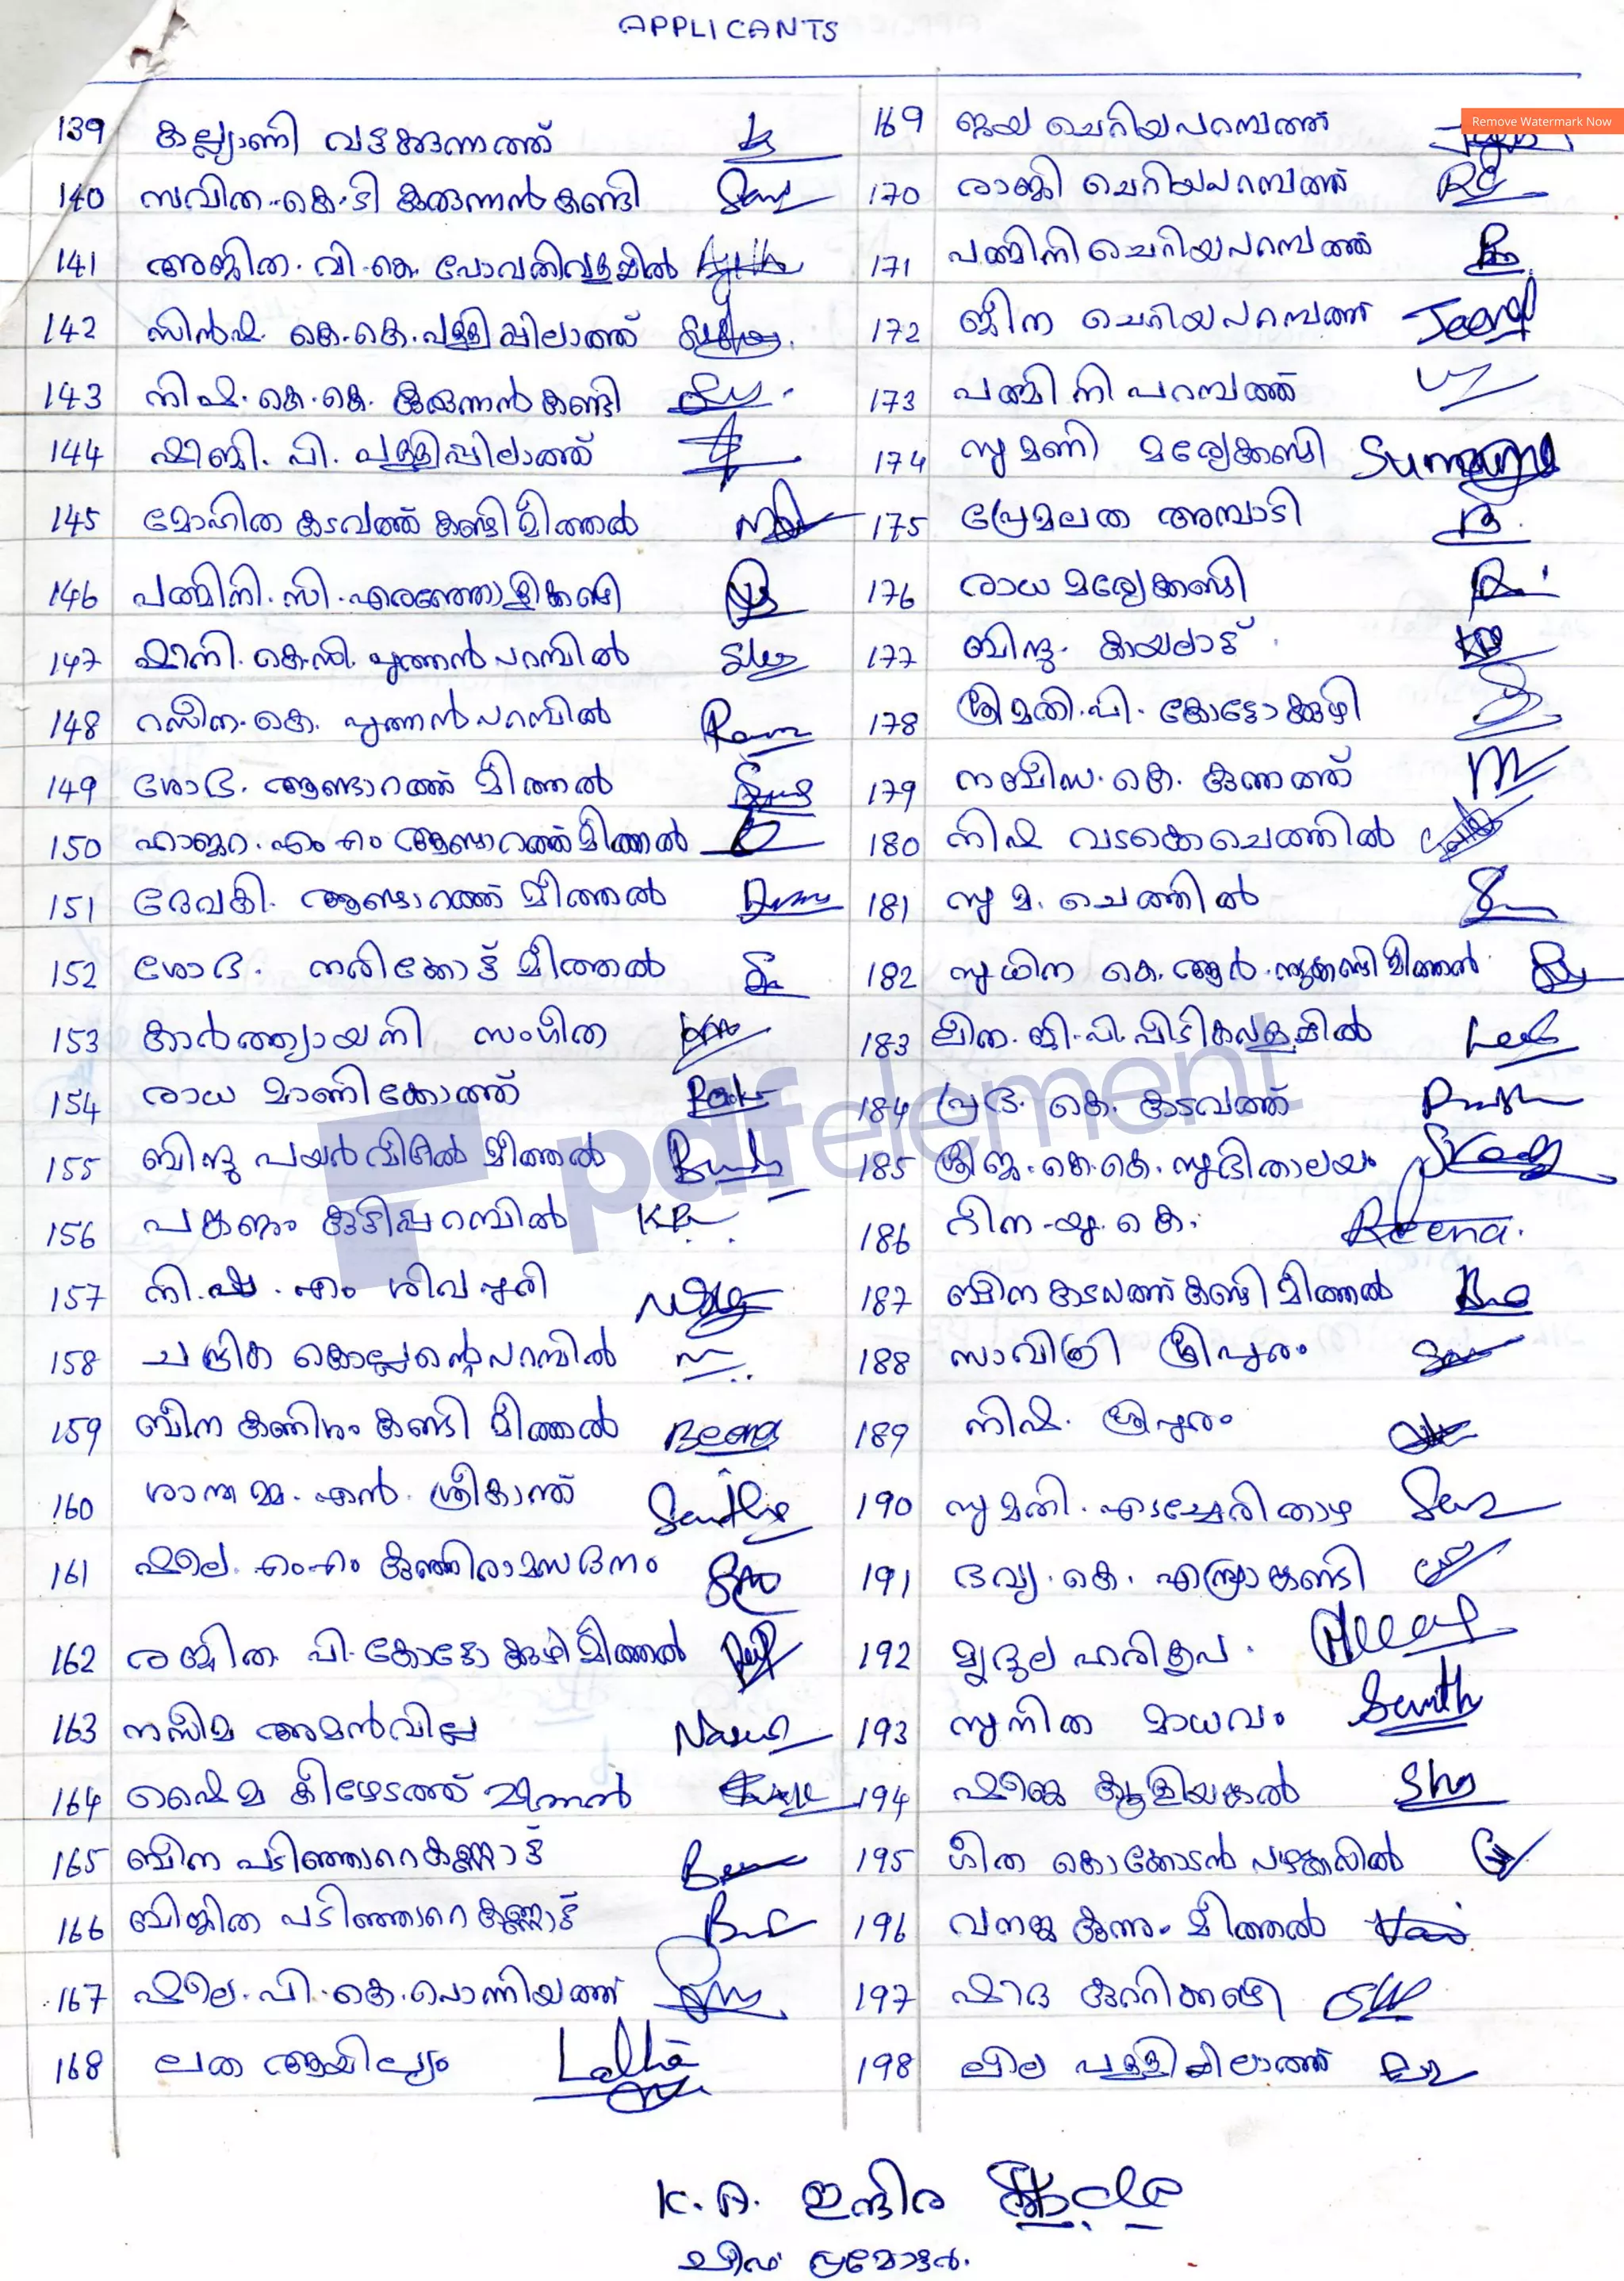 APPLICANTS
139 കല്ല്യാണി വട്ടക്കുന്നത്ത്
140 സവിത. കെ. ടി കുരുന്നൻ കണ്ടി
141 അജിത. വി. കെ. പോവതിവളപ്പിൽ
142 സിൻഷ. കെ. കെ. പള്ളിപ്പിലാത്ത്
143 നിഷ. കെ. കെ. കുരുന്നൻ കണ്ടി
144 ഷീബ്ജി. പി. പള്ളിപ്പിലാത്ത്
145 മോഹിത കടവത്ത് കണ്ടി മീത്തൽ
146 പത്മിനി. സി. എരഞ്ഞോളികണ്ടി
147 ഷീനി. കെ. സി. പുത്തൻ പറമ്പിൽ
148 റസീന. കെ. പുത്തൻ പറമ്പിൽ
149 ശോഭ. ആണ്ടാറത്ത് മീത്തൽ
150 ഹാജറ. എം എം ആണ്ടാറത്ത് മീത്തൽ
151 ദേവകി. ആണ്ടാറത്ത് മീത്തൽ
152 ശോഭ. നരിക്കോട്ട് മീത്തൽ
153 കാർത്ത്യായനി സംഗീത
154 രാധ മാണിക്കോത്ത്
155 ബിന്ദു പയർ വീട്ടിൽ മീത്തൽ
156 പങ്കജം കുടിപ്പറമ്പിൽ K.P.
157 നിഷ. എം ശിവപുരി
158 ചന്ദ്രിക കൊല്ലന്റെപറമ്പിൽ
159 ബീന കണിശം കണ്ടി മീത്തൽ Beena
160 ശാന്തമ്മ. എൻ. ശ്രീകാന്ത്
161 ഷീല. എം എം കുഞ്ഞിരാമസദനം
162 രജിത. പി. കോട്ടോക്കുഴി മീത്തൽ
163 നസീമ അമൻവില്ല
164 ഷൈമ കീഴേടത്ത് മീത്തൽ
165 ബീന പടിഞ്ഞാറെ കണ്ണോട്ട്
166 ബിജിത പടിഞ്ഞാറെ കണ്ണോട്ട്
167 ഷീല. പി. കെ. പൊന്നിയത്ത്
168 ലത ആയില്യം
169 ജയ ചെറിയപറമ്പത്ത്
170 രാജി ചെറിയപറമ്പത്ത്
171 പത്മിനി ചെറിയപറമ്പത്ത്
172 ജീന ചെറിയപറമ്പത്ത് Jeena
173 പത്മിനി പറമ്പത്ത്
174 സുമണി മഠ്യേക്കണ്ടി
175 പ്രേമലത അമ്പാടി
176 രാധ മഠ്യേക്കണ്ടി
177 ബിന്ദു. കായലാട്ട്
178 ശ്രീമതി. പി. കോട്ടോക്കുഴി
179 നബീസ. കെ. കുന്നത്ത്
180 നിഷ വടക്കെചെത്തിൽ
181 സുമ. ചെത്തിൽ
182 സുധിന കെ. ആർ.
183 ലീത. ജി. പി. പീടികവളപ്പിൽ
184 പ്രഭ. കെ. കടവത്ത്
185 ശ്രീജ. കെ. കെ. സുദിതാലയം
186 റീന. യു. കെ. Reena.
187 ബീന കടവത്ത് കണ്ടി മീത്തൽ
188 സാവിത്രി ശ്രീപുരം
189 നിഷ. ശ്രീപുരം
190 സുമതി. എടച്ചേരിതാഴ
191 ദവ്യ. കെ. എന്ത്രോങ്കണ്ടി
192 മൃദുല ഹരികൃപ.
193 സുനിത മാധവം
194 ഷീജ കൂളിയങ്കൽ
195 ഗീത കൊക്കോടൻ പഴക്കലിൽ
196 വനജ കുന്നും മീത്തൽ
197 ഷീദ കുററിക്കണ്ടി
198 ലീല പള്ളിപ്പിലാത്ത്
K. A. ഇന്ദിര
ചീഫ് പ്രമോട്ടർ.
pdfelement
Remove Watermark Now